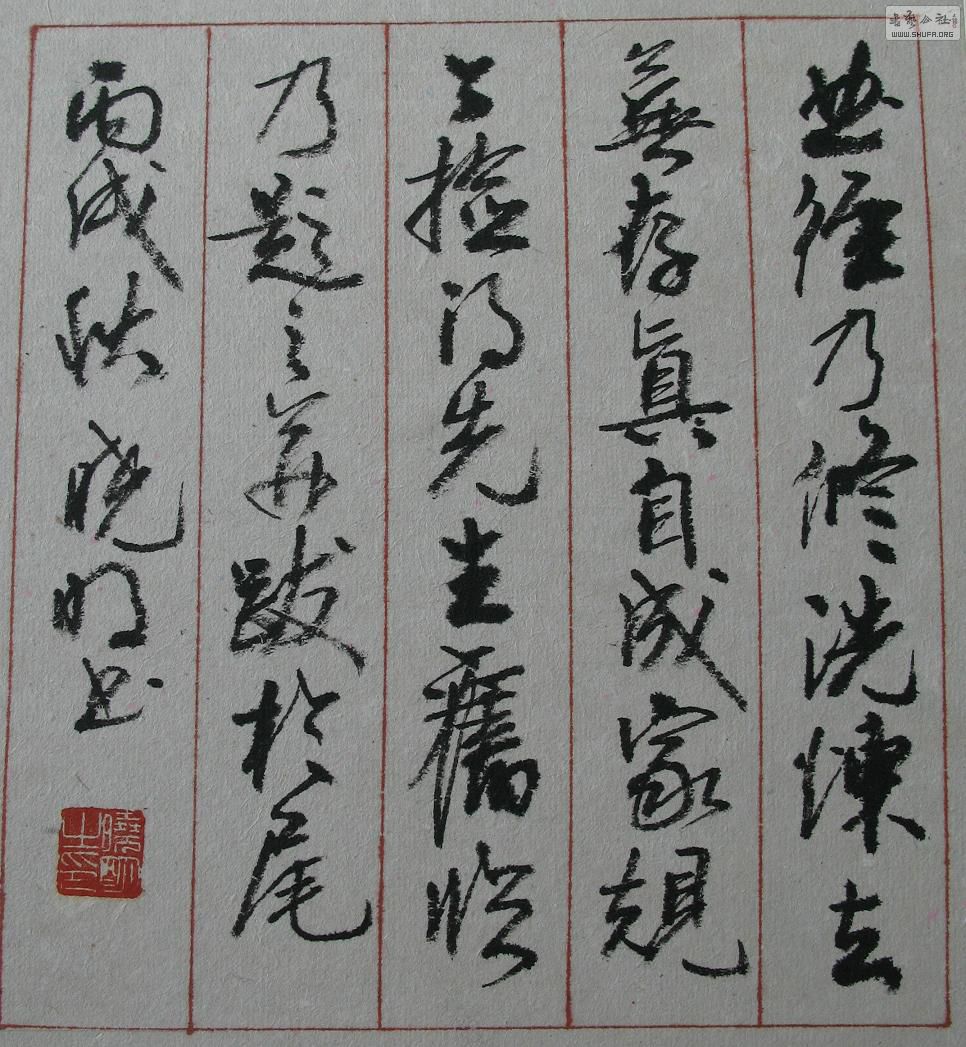 徑乃修洗煉去
蕪存眞自成家規
檢得先生舊臨
乃題之並跋於尾
丙戌秋曉明書
曉明之印
書藝公社
WWW.SHUFA.ORG